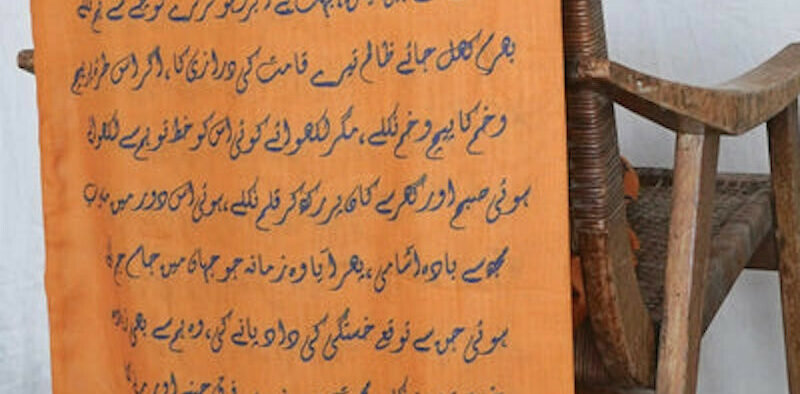 بہت بے آبرو ہو کر ترے کوچے سے ہم نکلے
بھرم کھل جائے ظالم تیرے قامت کی درازی کا، اگر اس طرہ پر پیچ
و خم کا پیچ و خم نکلے، مگر لکھوائے کوئی اس کو خط تو ہم سے لکھوائے
ہوئی صبح اور گھر سے کان پر رکھ کر قلم نکلے، ہوئی اس دور میں
مجھ سے بادہ آشامی، پھر آیا وہ زمانہ جو جہاں میں جام
ہوئی جن سے توقع خستگی کی داد پانے کی، وہ ہم سے بھی زیادہ